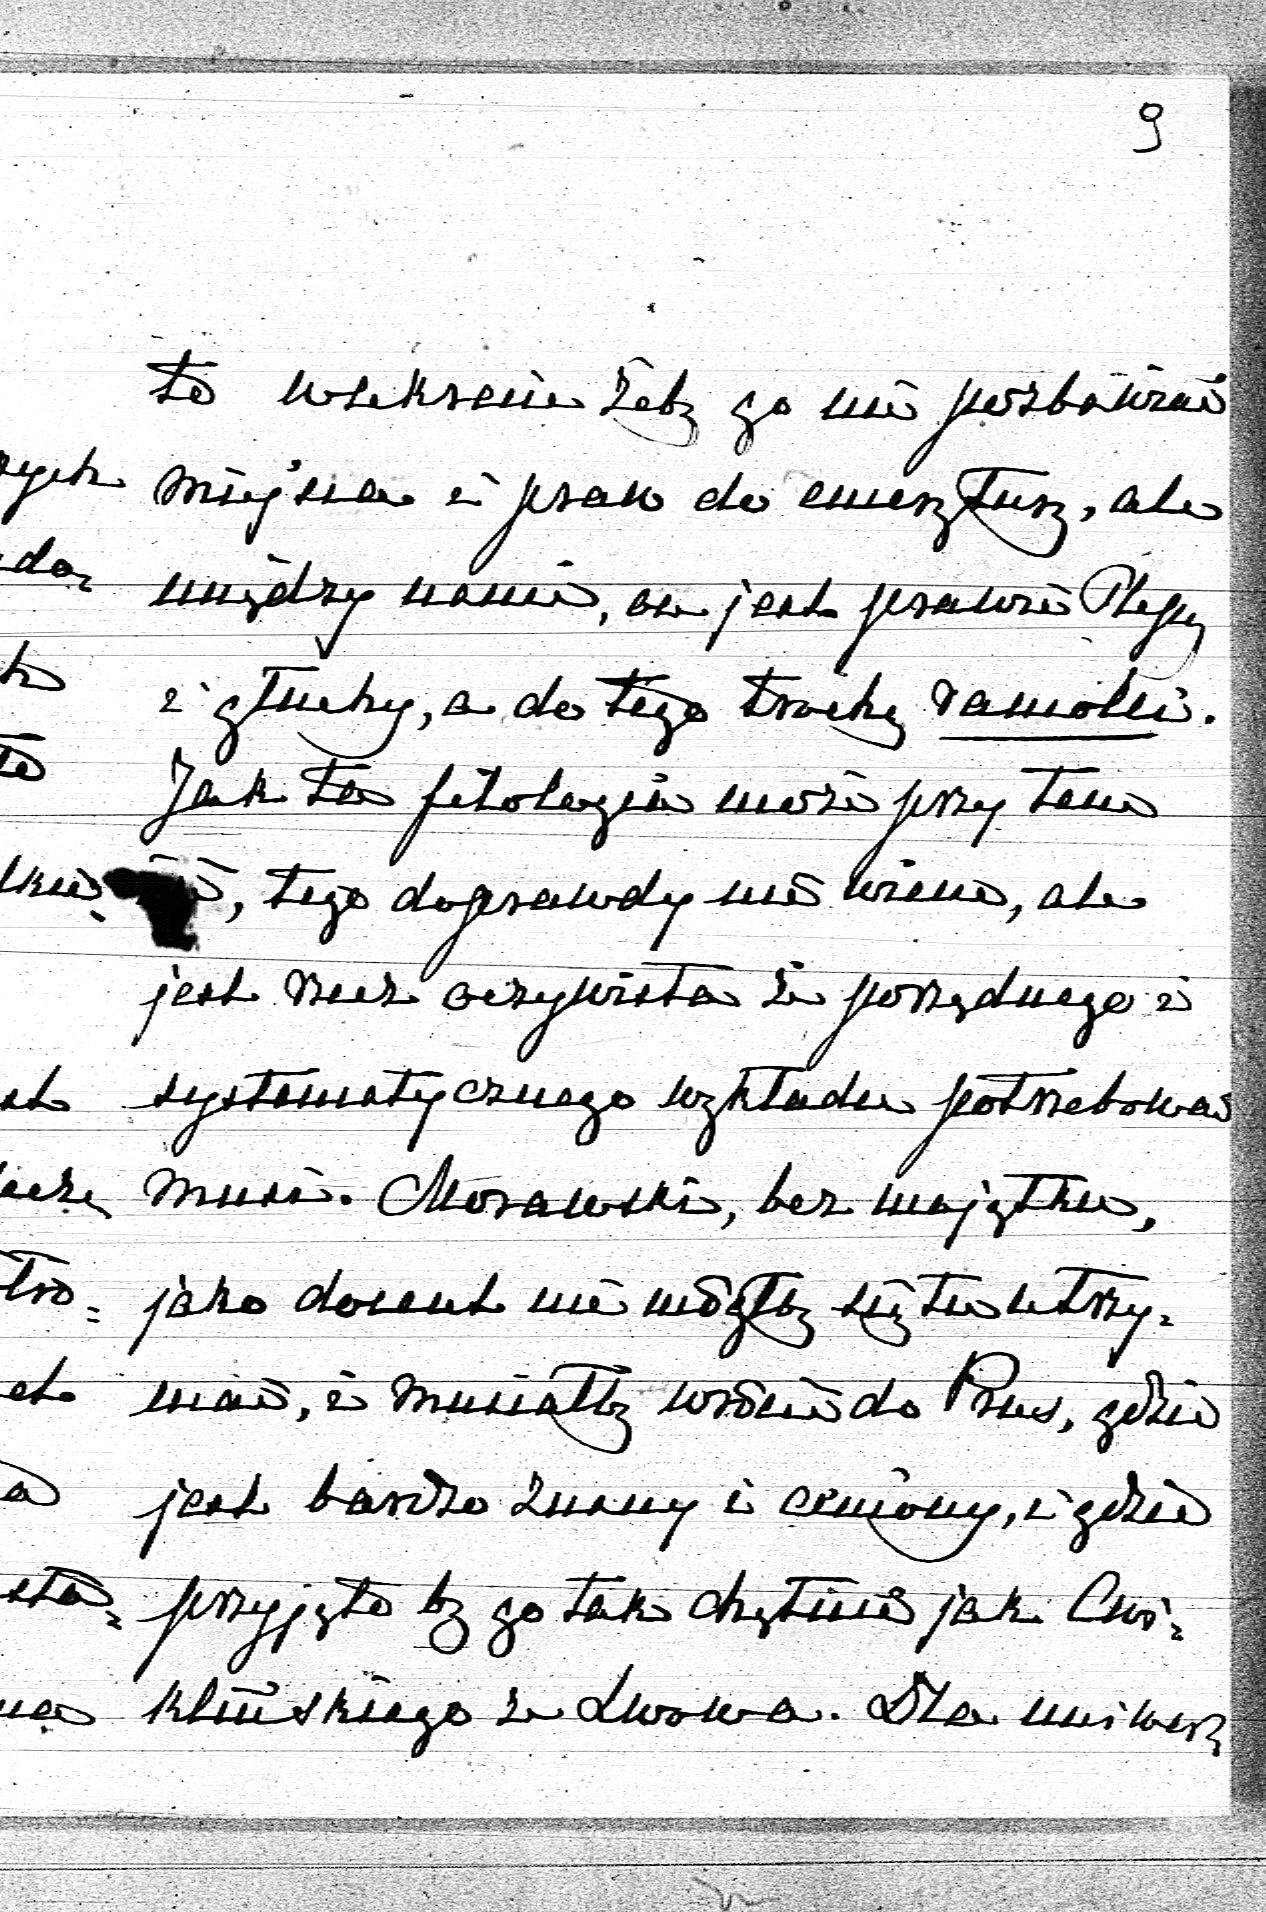 9
to żeby go nie pozbawiać
miejsca i praw do emerytury, ale
między nami, on jest prawie ślepy
i głuchy, a do tego trochę ramolli.
Jak ta filologia może przy tem
iść, tego doprawdy nie wiem, ale
jest rzecz oczywista że porządnego i
systematycznego wykładu potrzebować
musi. Morawski, bez majątku,
jako docent nie mógłby się tu utrzy-
mać, i musiałby wrócić do Prus, gdzie
jest bardzo znany i ceniony, i gdzie
przyjęto by go tak chętnie jak Ćwi-
klińskiego ze Lwowa. Dla uniwer